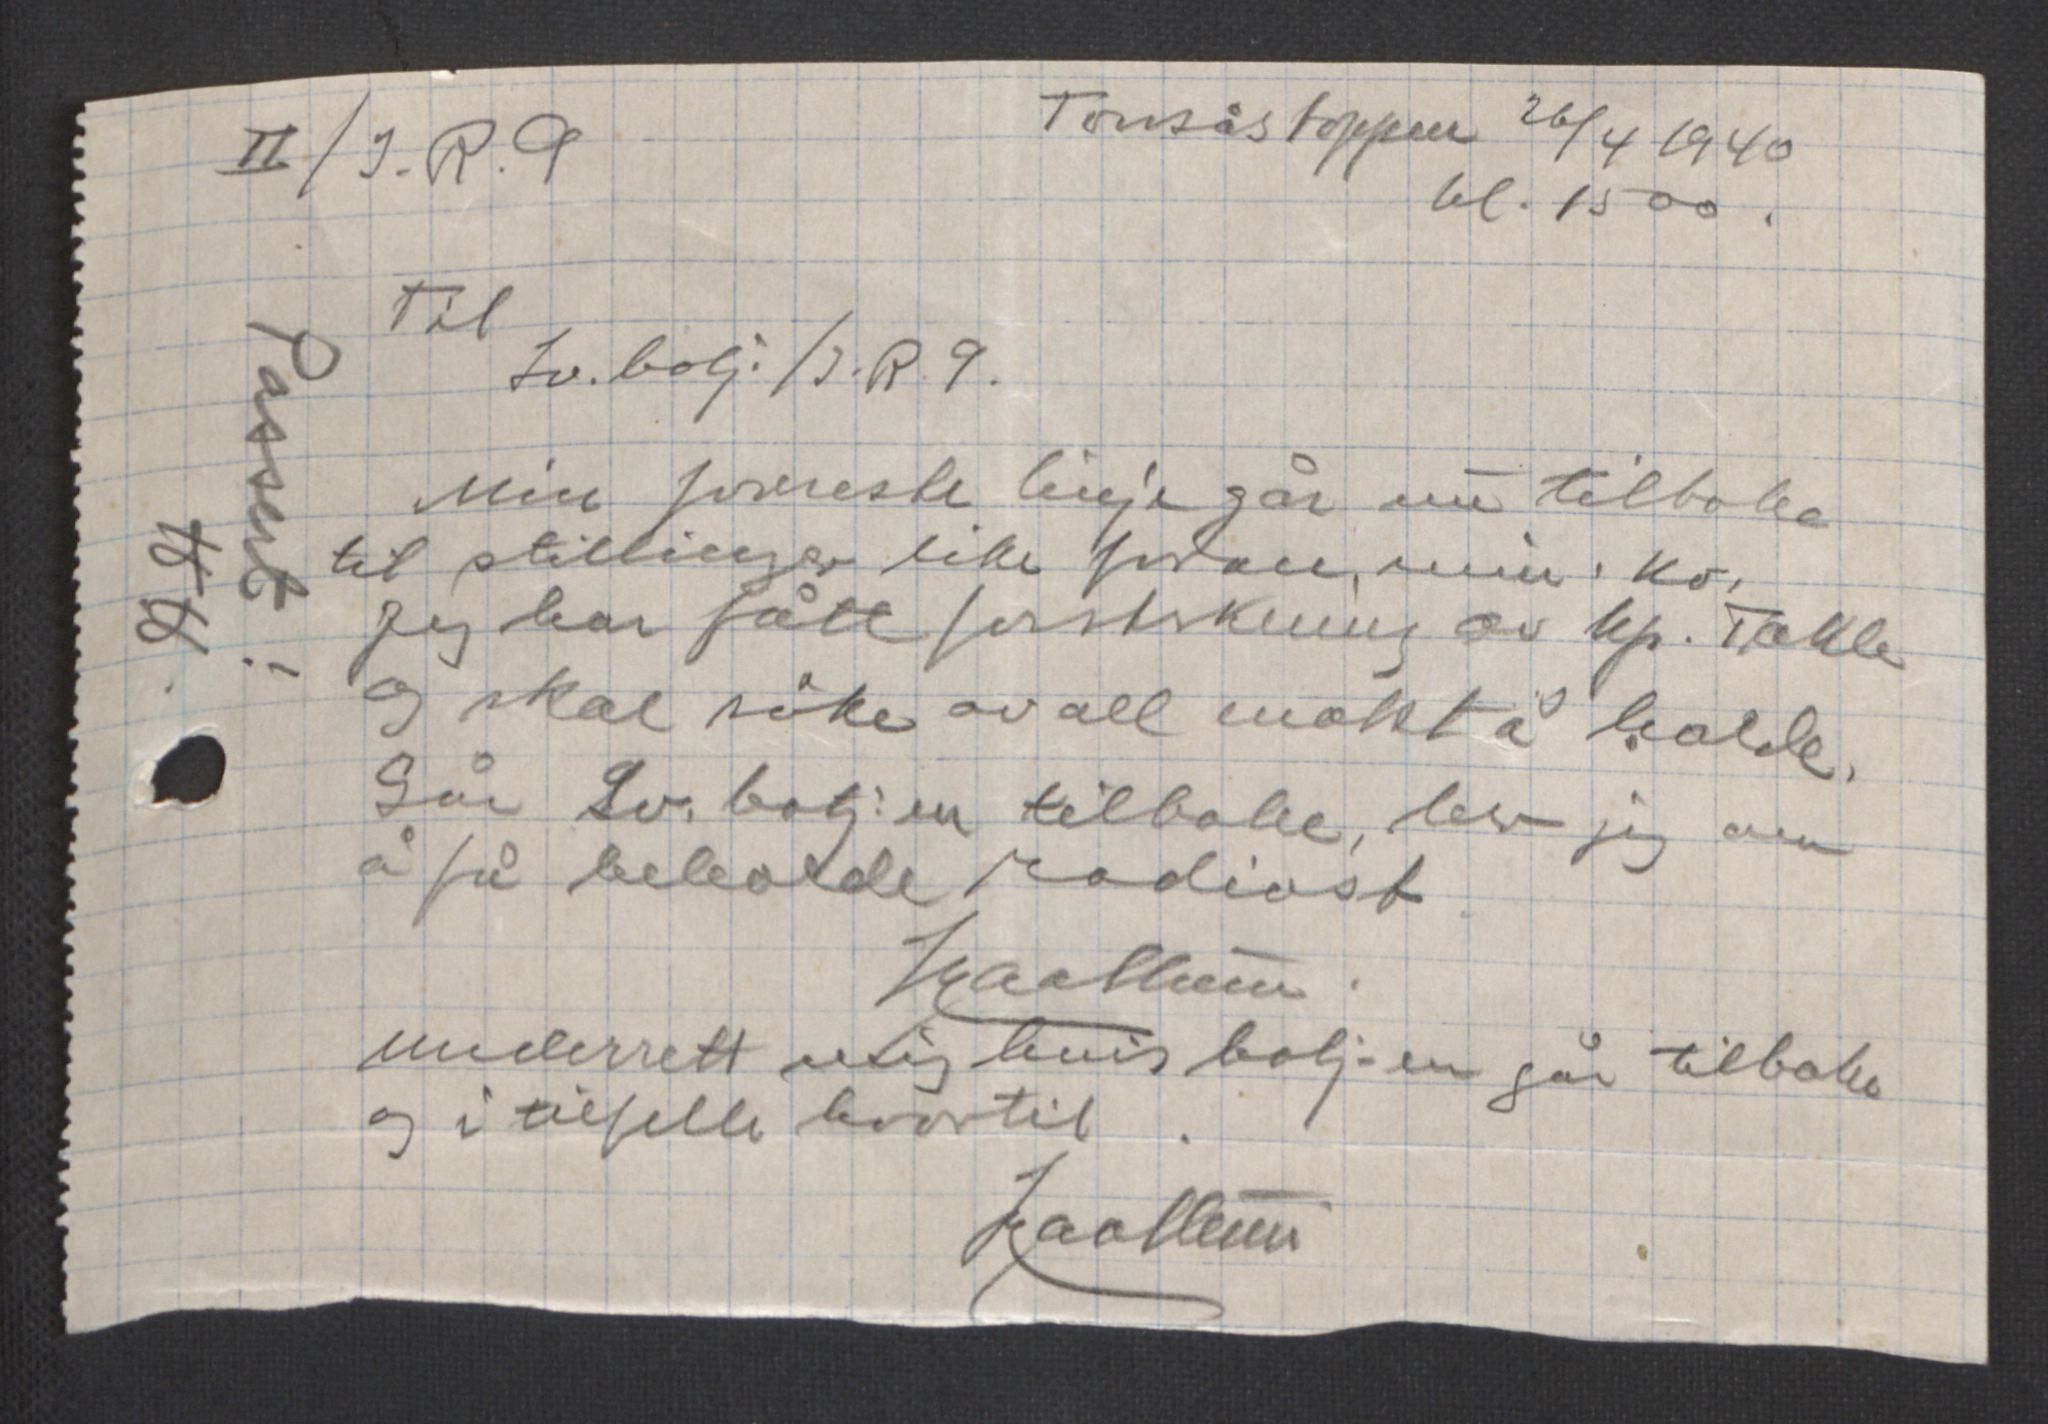 II/I.R.9
Tonsåstoppen 26/4 1940
kl. 1500.
Til
Lv.batj:/I.R.9.
Min forreste linje går nu tilbake
til stillinger like foran min Ko.
Jeg har fått forsterkning av kp. Takle
og skal söke av all makt å holde.
Går Lv.batj:en tilbake, ber jeg om
å få beholde radiost.
underrett mig hvis batj:en går tilbake
og i tilfelle hvortil.
Passert!